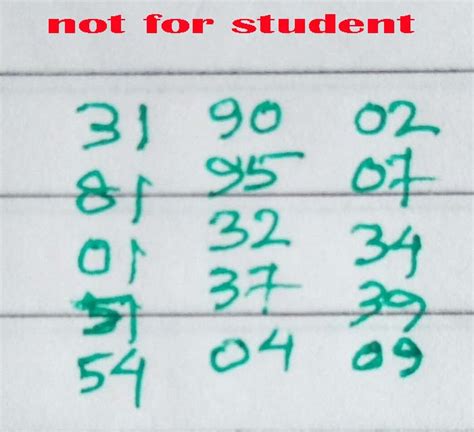 not for student
31 90 02
81 95 07
01 32 34
51 37 39
54 04 09